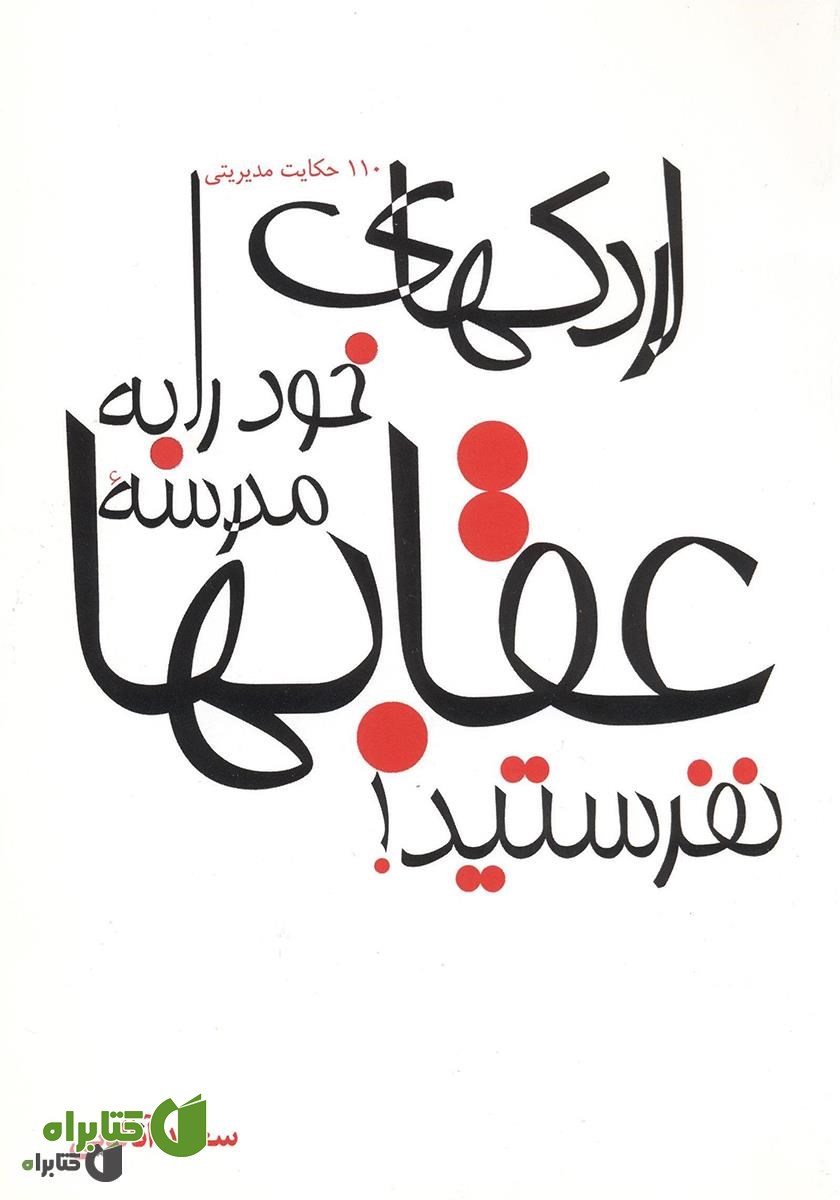 ۱۱۰ حکایت مدیریتی
اردکهای
خود را به
مدرسهٔ
عقابها
نفرستید!
کتابراه
کتابراه